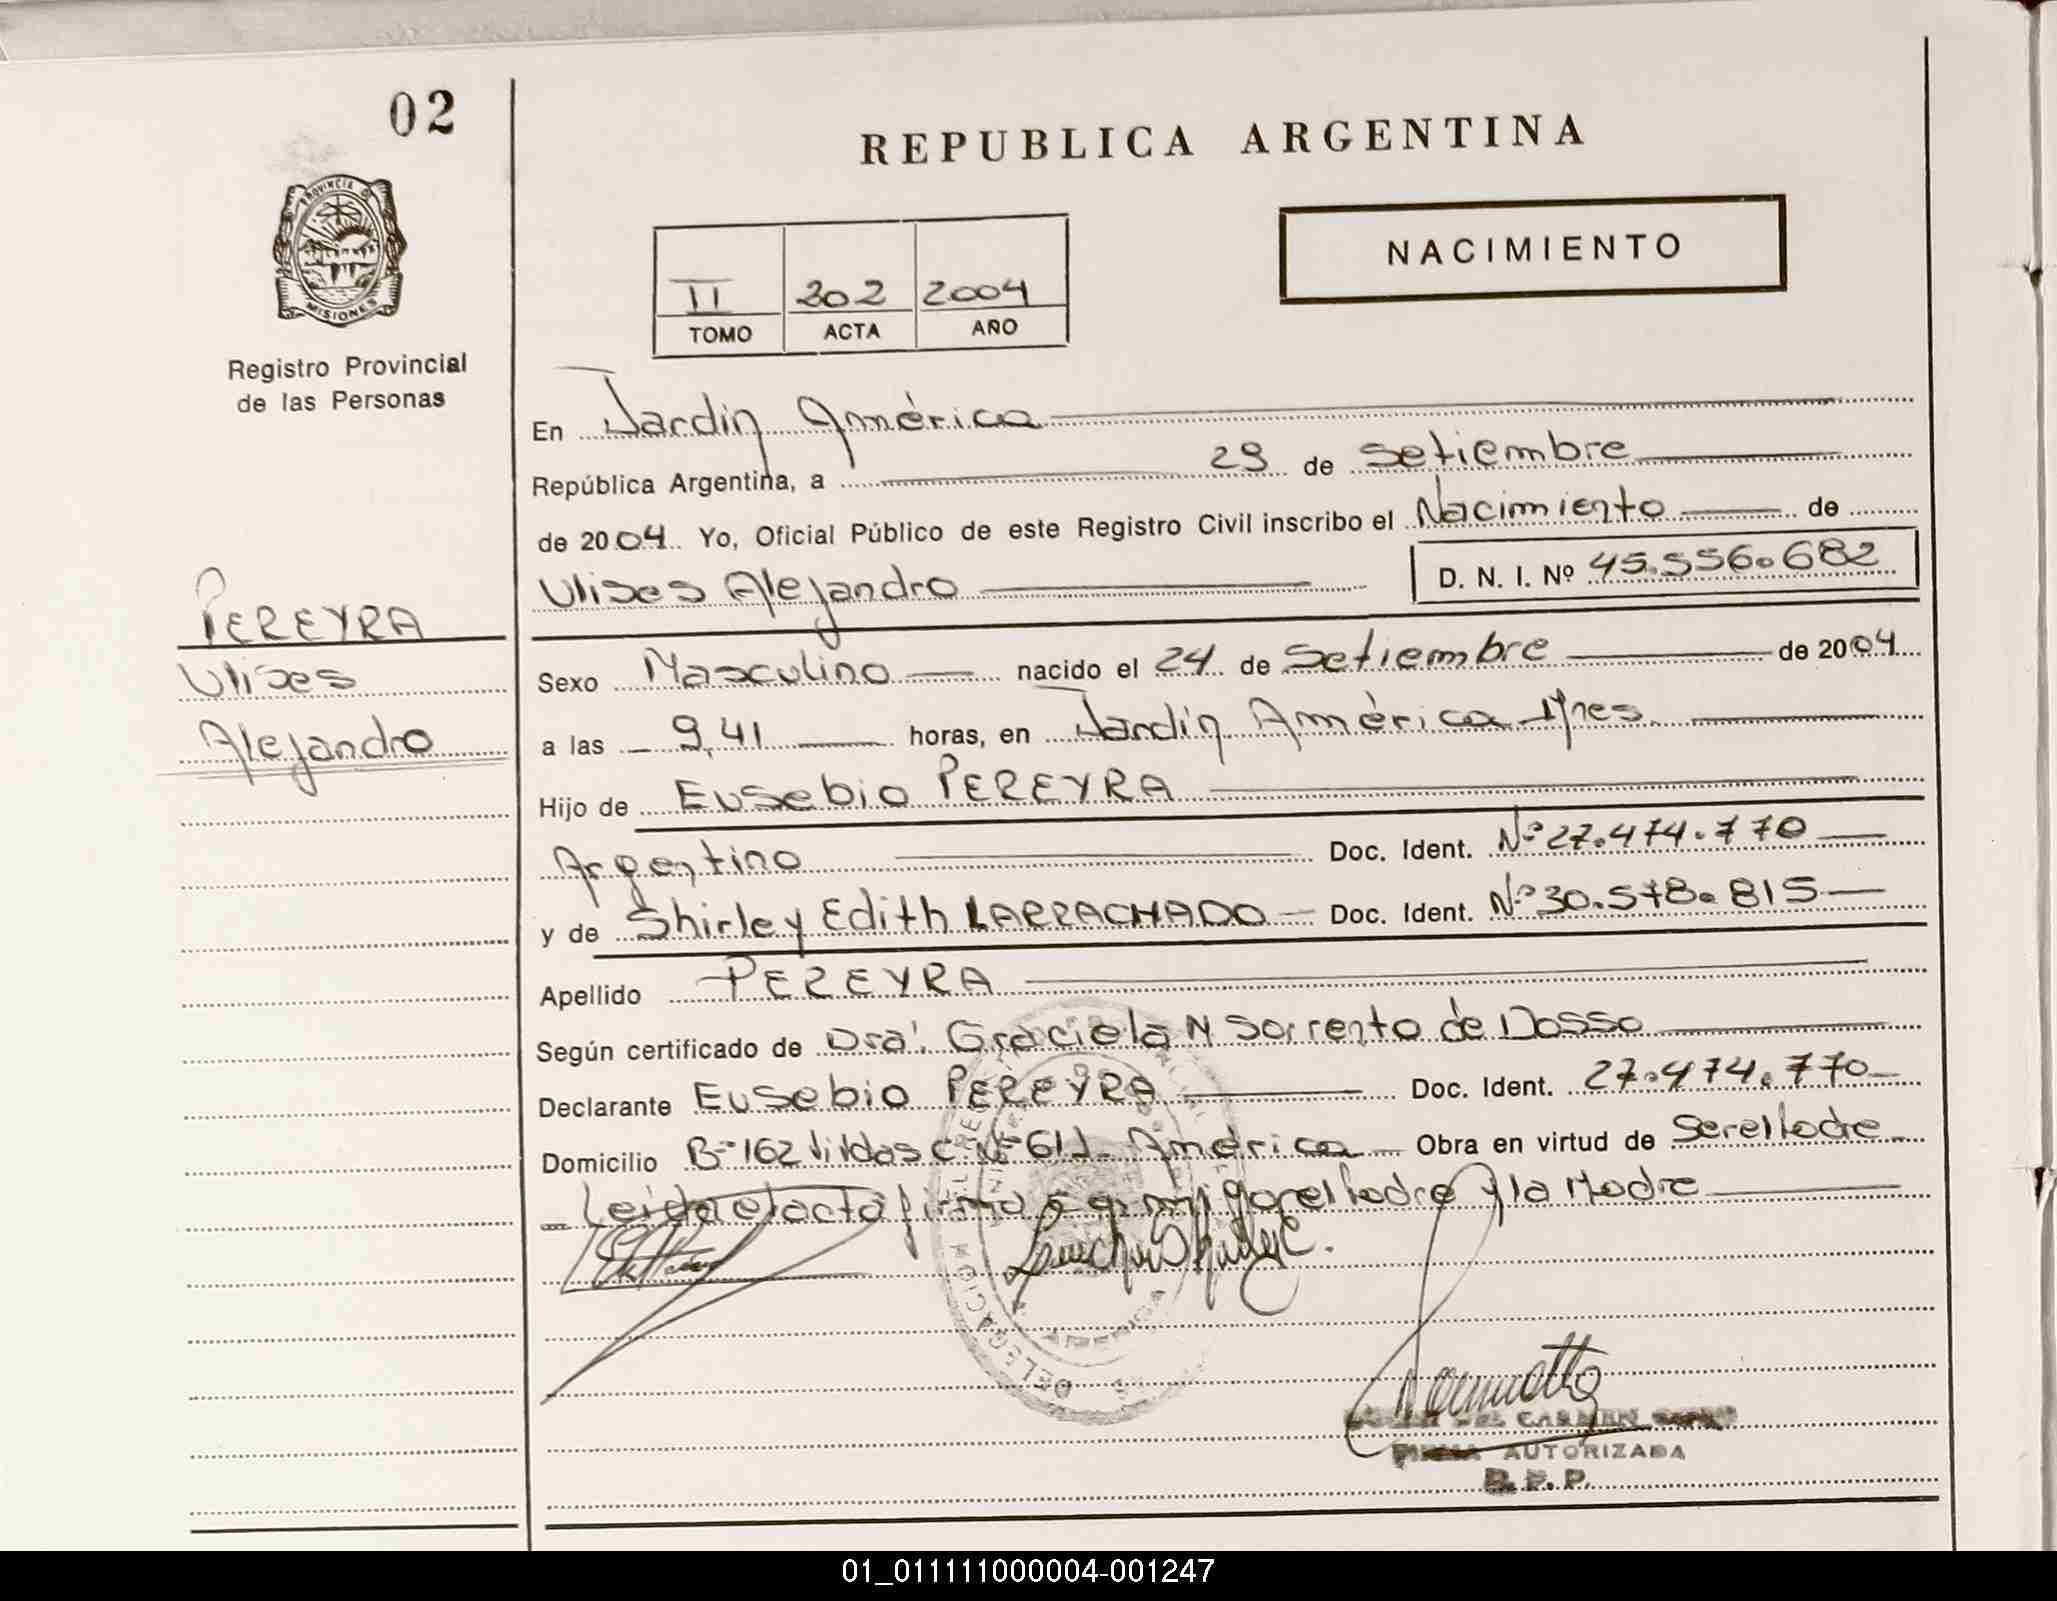 02
REPUBLICA ARGENTINA
PROVINCIA D
MISIONES
Registro Provincial
de las Personas
NACIMIENTO
II 202 2004
TOMO ACTA AÑO
En Jardín América
República Argentina, a 29 de Setiembre
de 2004. Yo, Oficial Público de este Registro Civil inscribo el Nacimiento de
Ulises Alejandro D. N. I. Nº 45.556.682
PEREYRA
Ulises
Alejandro
Sexo Masculino nacido el 24 de Setiembre de 2004
a las 9,41 horas, en Jardín América Mnes.
Hijo de Eusebio PEREYRA
Argentino Doc. Ident. Nº 27.474.770
y de Shirley Edith LARRACHADO Doc. Ident. Nº 30.578.815
Apellido PEREYRA
Según certificado de Dra. Graciela N Sorrento de Dosso
Declarante Eusebio PEREYRA Doc. Ident. 27.474.770
Domicilio B- 162 C Nº 611 América Obra en virtud de Ser el Padre
Leida el acta firma el Padre y la Madre
DELEGACION
AMERICA
DEL CARMEN
FIRMA AUTORIZADA
R. P. P.
01_011111000004-001247